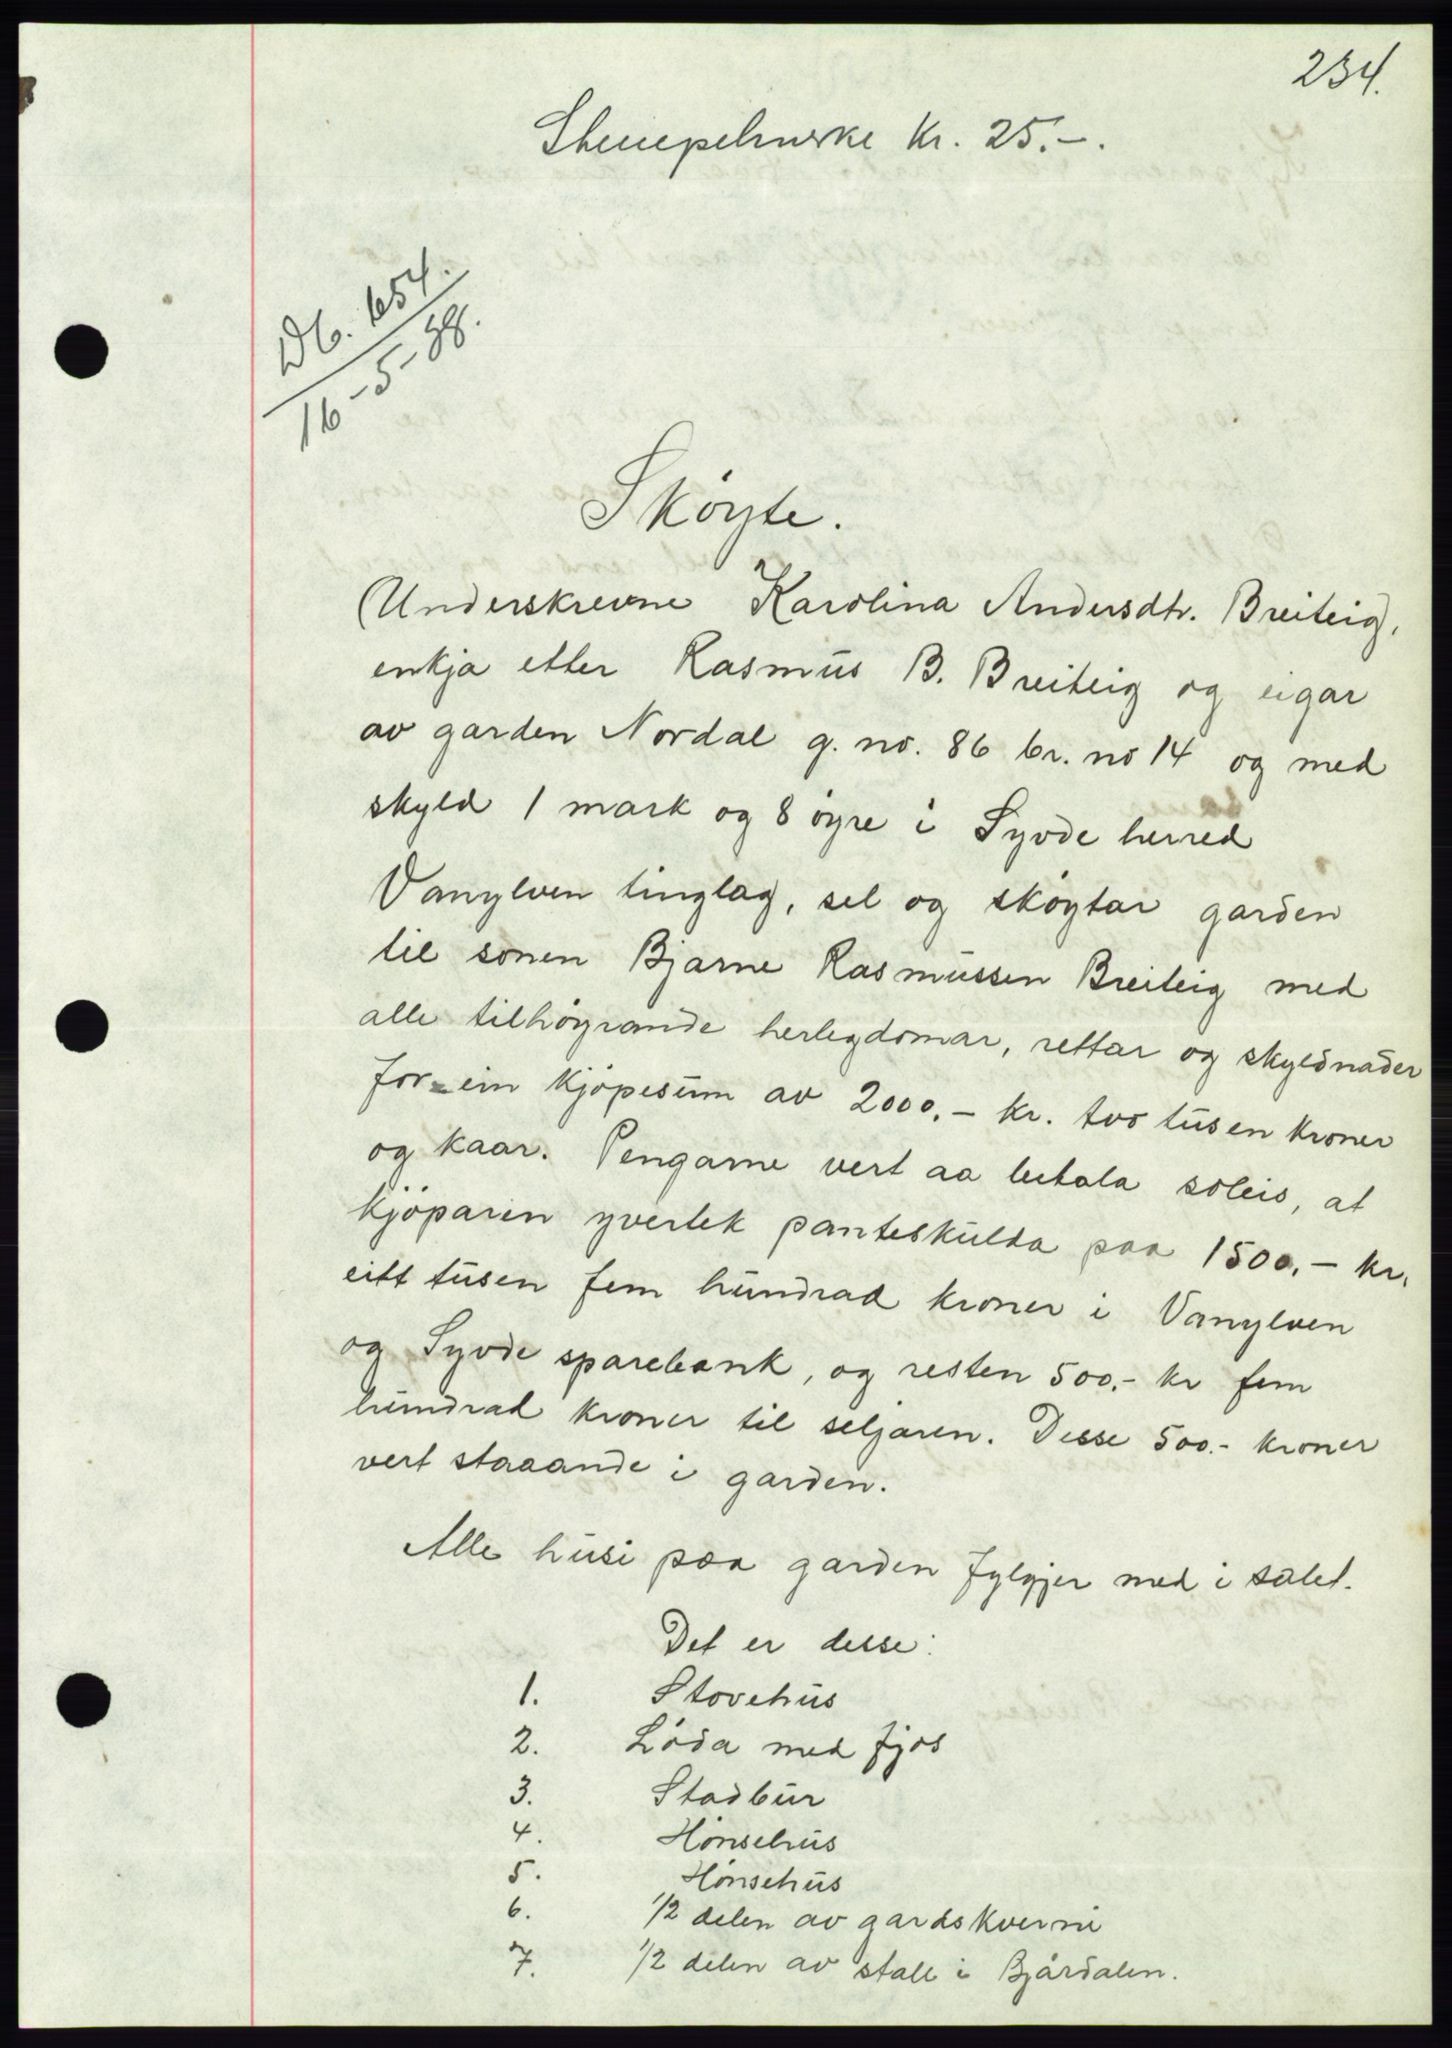 234.
Stempelmerke kr. 25.-.
Db. 654.
16-5-38.
Skøyte.
Underskrevne Karolina Andersdtr. Breiteig,
enkja etter Rasmus B. Breiteig og eigar
av garden Nordal g. no. 86 br. no 14 og med
skyld 1 mark og 8 øyre i Syvde herred
Vanylven tinglag, sel og skøytar garden
til sonen Bjarne Rasmussen Breiteig med
alle tilhøyrande herlegdomar, rettar og skyldnader
for ein kjøpesum av 2000.- kr. tvo tusen kroner
og kaar. Pengarne vert aa betala soleis, at
kjøparen yvertek panteskulda paa 1500.- kr.
eitt tusen fem hundrad kroner i Vanylven
og Syvde sparebank, og resten 500.- kr fem
hundrad kroner til seljaren. Desse 500.- kroner
vert staaande i garden.
Alle husi paa garden fylgjer med i salet.
Det er desse:
1. Stovehus
2. Løda med fjos
3. Stadbur
4. Hønsehus
5. Hønsehus
6. 1/2 delen av gardskverni
7. 1/2 delen av stall i Bjårdalen.